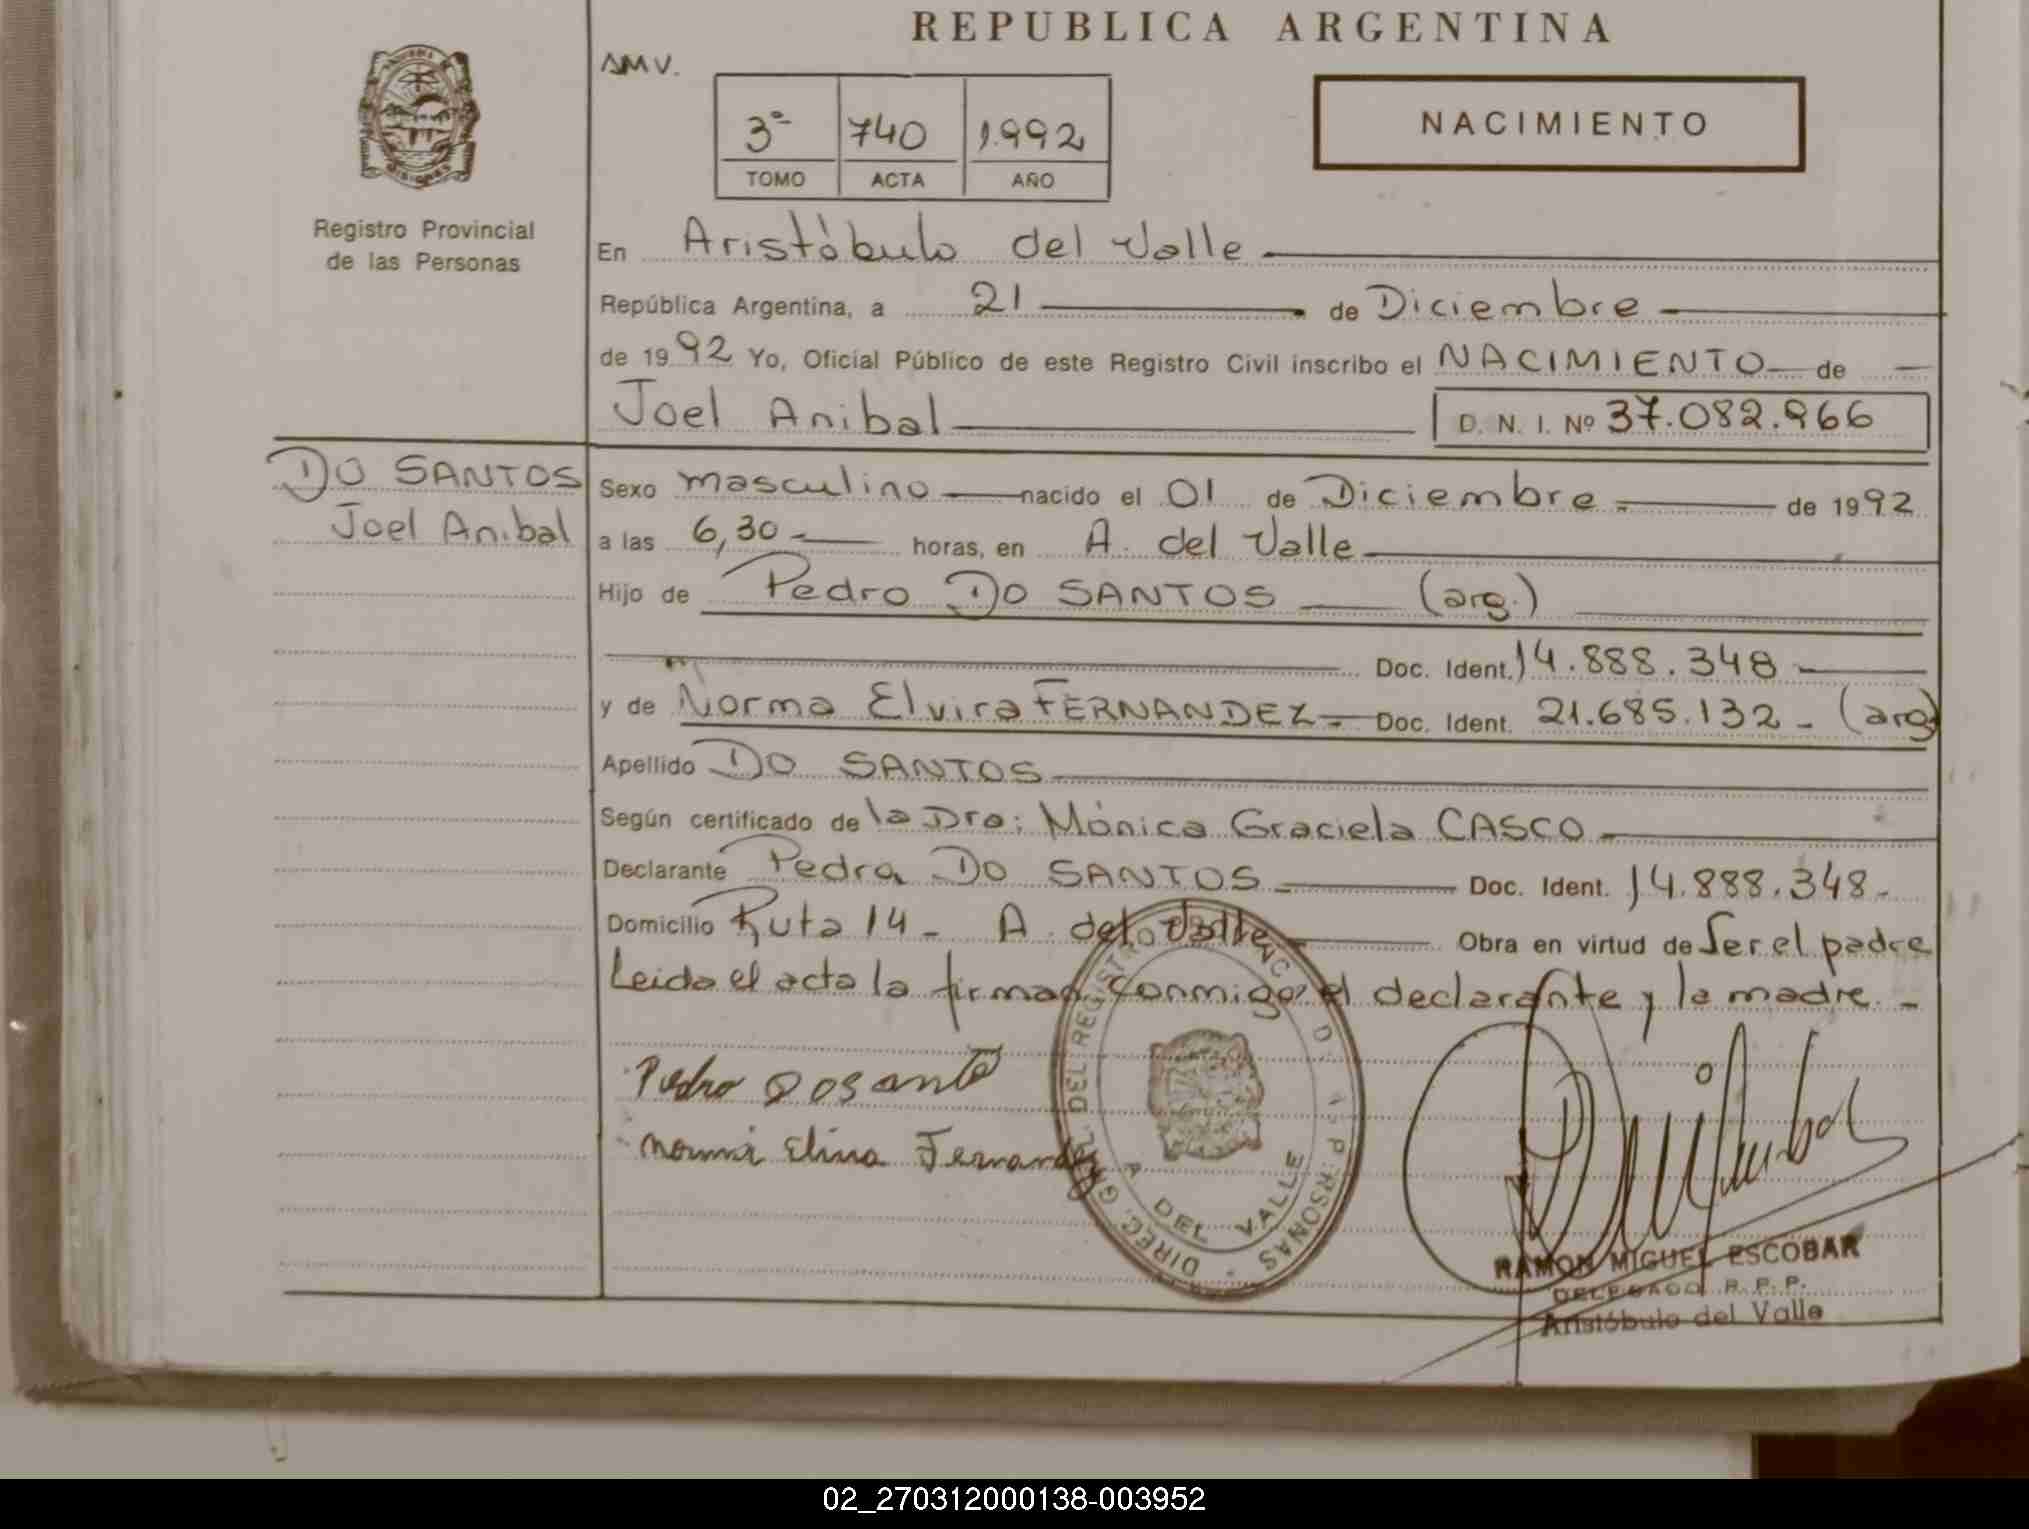 REPUBLICA ARGENTINA
AMV.
3ª 740 1.992
TOMO ACTA AÑO
NACIMIENTO
MISIONES
Registro Provincial
de las Personas
En Aristóbulo del Valle
República Argentina, a 21 de Diciembre
de 1992 Yo, Oficial Público de este Registro Civil inscribo el NACIMIENTO de
Joel Anibal D. N. I. Nº 37.082.966
DO SANTOS
Joel Anibal
Sexo masculino nacido el 01 de Diciembre de 1992
a las 6,30 horas, en A. del Valle
Hijo de Pedro DO SANTOS (arg.)
Doc. Ident. 14.888.348
y de Norma Elvira FERNANDEZ Doc. Ident. 21.685.132 - (arg)
Apellido DO SANTOS
Según certificado de la Dra: Mónica Graciela CASCO
Declarante Pedro DO SANTOS Doc. Ident. 14.888.348-
Domicilio Ruta 14 - A. del Valle Obra en virtud de Ser el padre
Leida el acta la firman conmigo el declarante y la madre. -
Pedro DOSanto
Fernandez
A DEL VALLE
RAMON MIGUEL ESCOBAR
DELEGADO R. P. P.
Aristóbulo del Valle
02_270312000138-003952